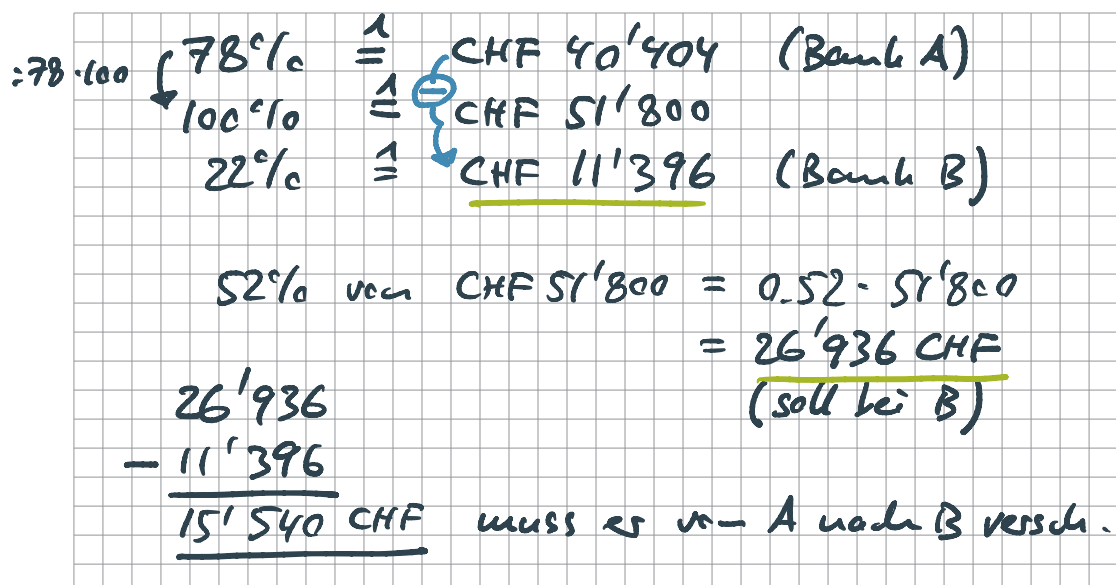 78% ≙ CHF 40'404 (Bank A)
:78·100
100% ≙ CHF 51'800
22% ≙ CHF 11'396 (Bank B)
52% von CHF 51'800 = 0.52 · 51'800
= 26'936 CHF
(soll bei B)
26'936
− 11'396
15'540 CHF muss er von A nach B versch.